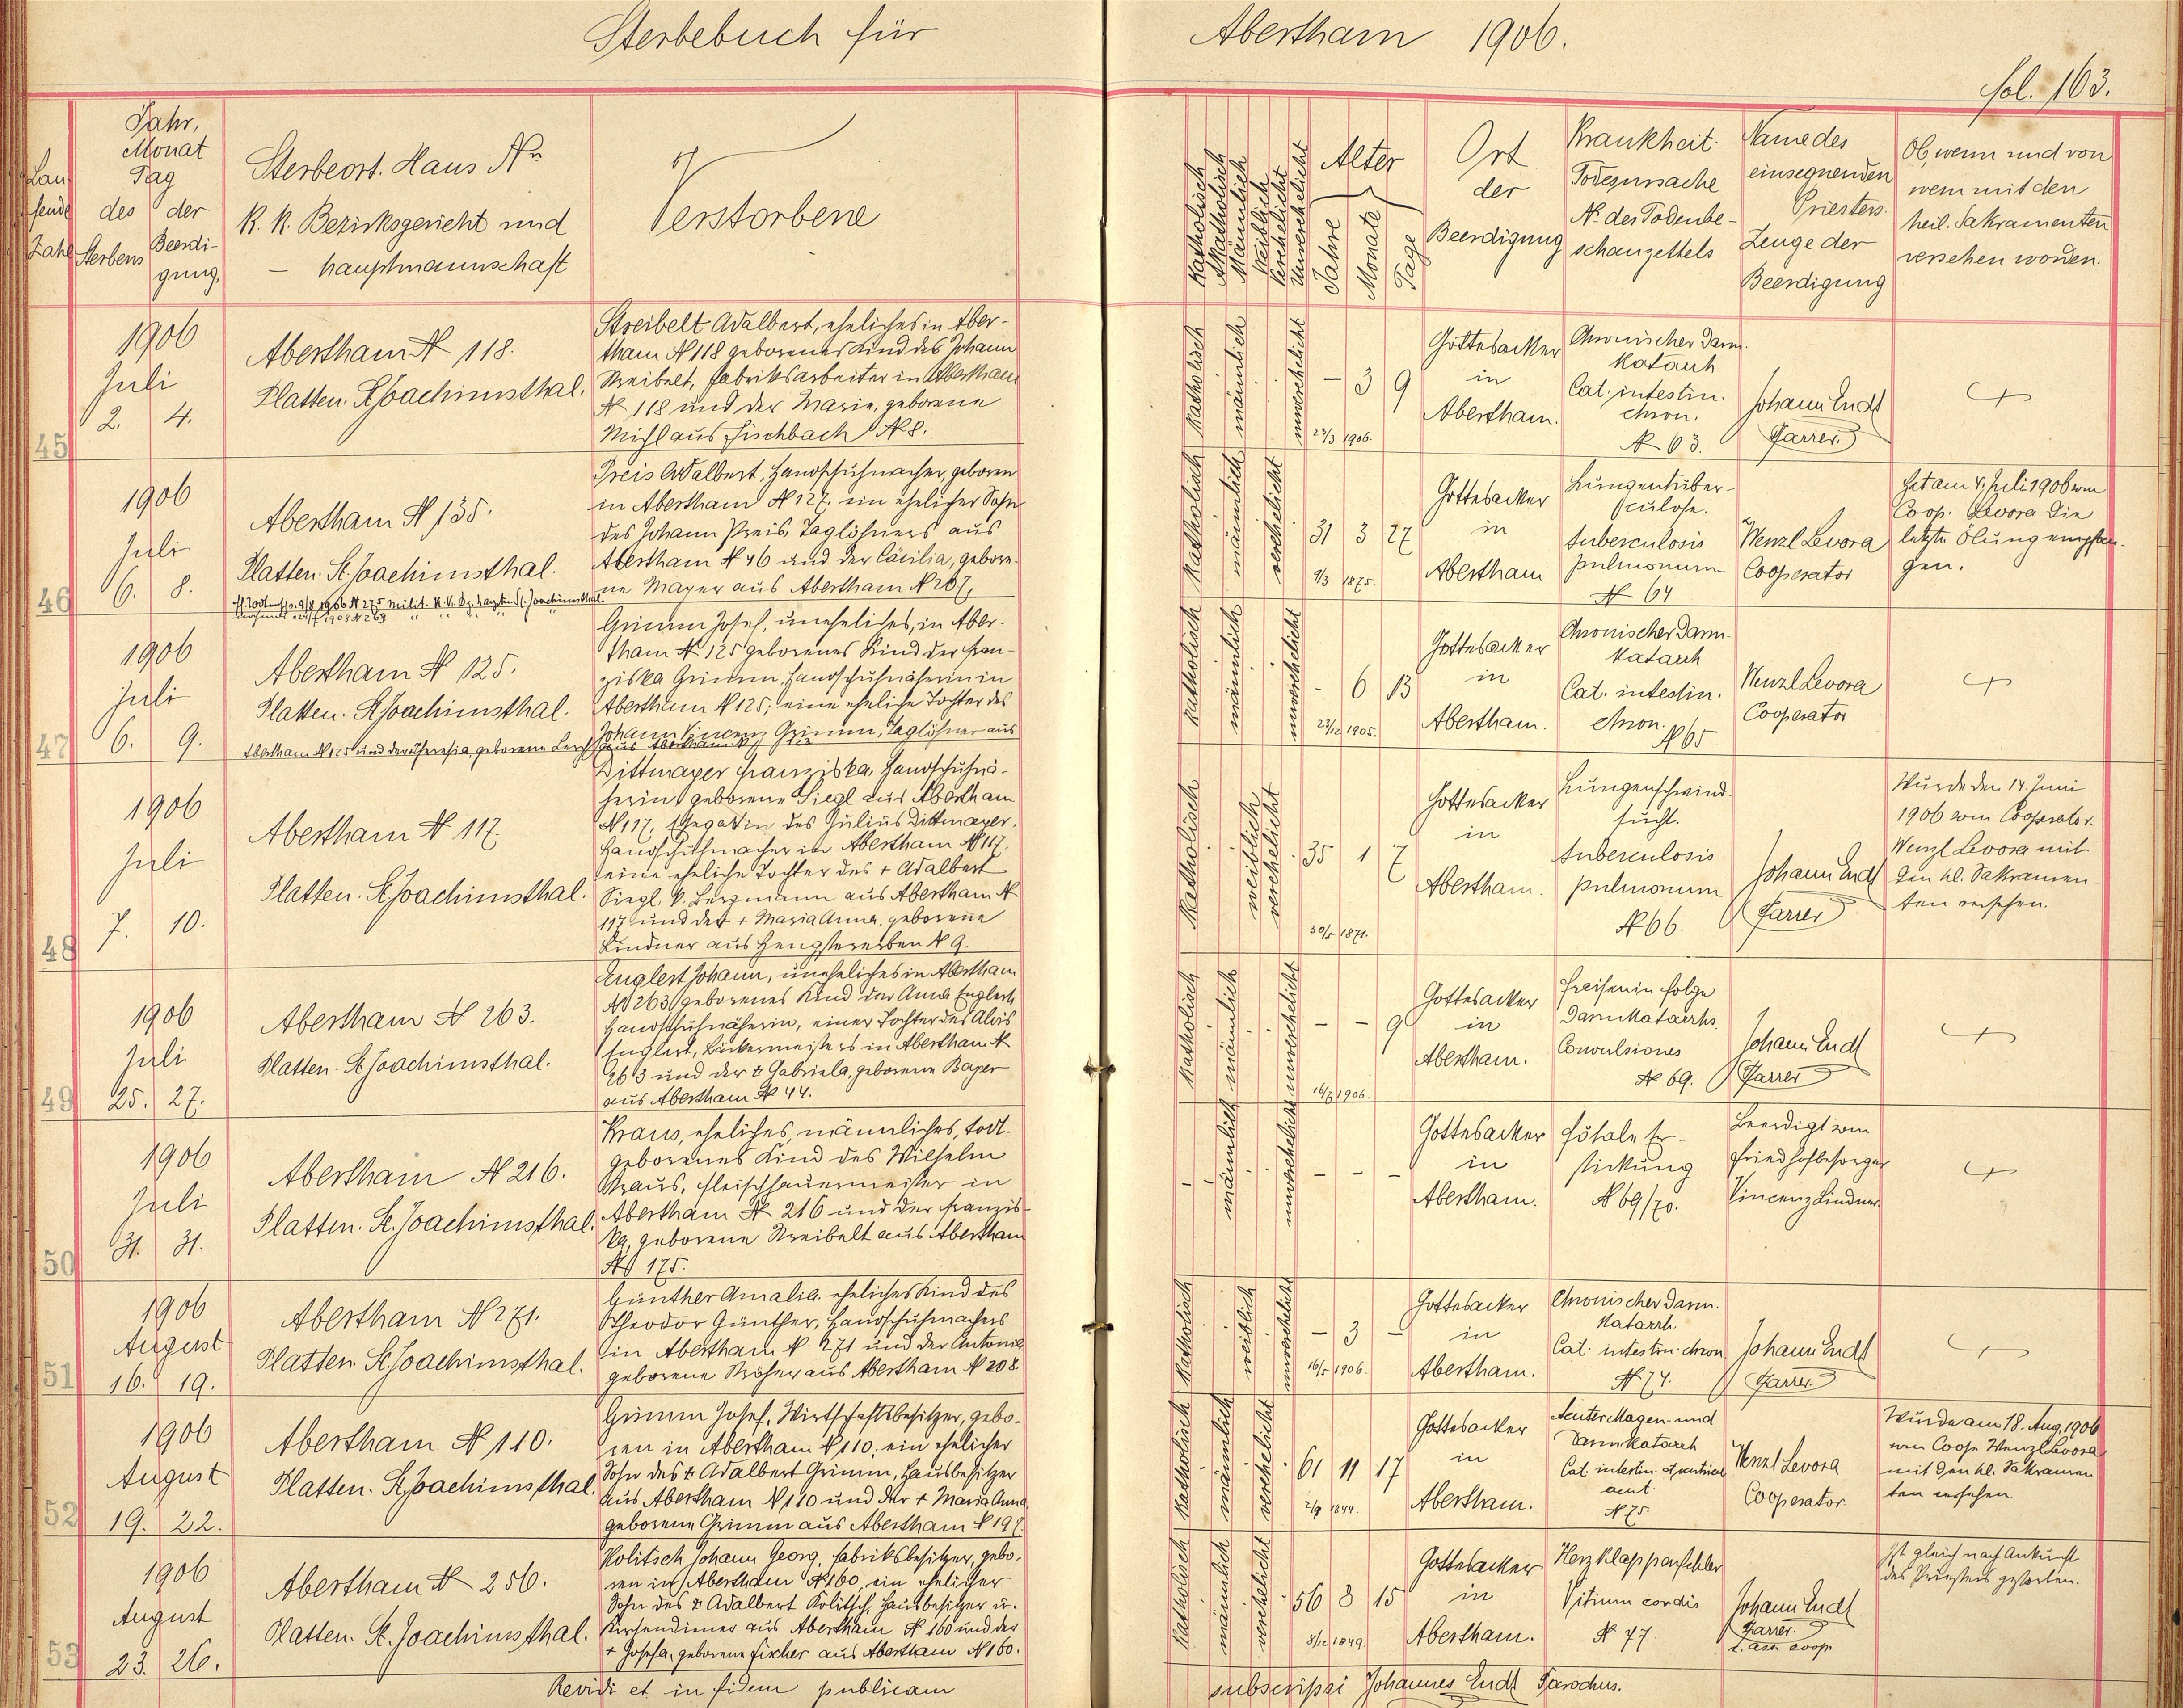 Sterbebuch für Abertham 1906.
fol. 163.
Laufende Zahl
Jahr, Monat Tag
des Sterbens
der Beerdigung,
Sterbeort. Haus Nr
K. K. Bezirksgericht und
— hauptmannschaft
Verstorbene
Katholisch
Akatholisch
Männlich
Weiblich
Verehelicht
Unverehelicht
Alter
Jahre
Monate
Tage
Ort
der
Beerdigung
Krankheit.
Todesursache
Nr. des Todenbe-
schauzettels
Name des
einsegnenden
Priesters.
Zeuge der
Beerdigung
Ob, wenn und von
wem mit den
heil. Sakramenten
versehen worden.
45
1906
Juli
2. 4.
Abertham N 118.
Platten. St Joachimsthal.
Streibelt Adalbert, eheliches in Aber-
tham N 118 geborenes Kind des Johann
Streibelt, Fabriksarbeiter in Abertham
N 118 und der Marie, geborene
Michl aus Fischbach N 8.
katholisch
männlich
unverehelicht
— 3 9
23/3 1906.
Gottesacker
in
Abertham.
Chronischer Darm-
katarrh
Cat. intestin.
chron.
N 63.
Johann Endt
Pfarrer.
+
46
1906
Juli
6. 8.
Abertham N 135.
Platten. St. Joachimsthal.
Preis Adalbert, Handschuhmacher, geboren
in Abertham N 127. ein ehelicher Sohn
des Johann Preis, Taglöhners aus
Abertham N 46 und der Cäcilia, gebore-
ne Mayer aus Abertham N 207.
katholisch
männlich
verehelicht
31 3 27
9/3 1875.
Gottesacker
in
Abertham
Lungentuber-
culose.
tuberculosis
pulmonum
N 64
Wenzl Levora
Cooperator
Hat am 4. Juli 1906 vom
Coop. Levora die
letzte Ölung empfan-
gen.
47
1906
Juli
6. 9.
Abertham N 125.
Platten. St Joachimsthal.
Grimm Josef, uneheliches, in Aber-
tham N 125 geborenes Kind der Fran-
ziska Grimm, Handschuhnäherin in
Abertham N 125; eine eheliche Tochter des
Johann Vincenz Grimm, Taglöhner aus
Abertham N 125 und der Theresia, geborene Lerch aus Abertham
katholisch
männlich
unverehelicht
- 6 13
23/12 1905.
Gottesacker
in
Abertham.
Chronischer Darm-
katarrh
Cat. intestin.
chron.
N 65
Wenzl Levora
Cooperator
+
48
1906
Juli
7. 10.
Abertham N 117
Platten. St. Joachimsthal.
Dittmayer Franziska, Handschuhnä-
herin geborene Siegl aus Abertham
N 117, Ehegattin des Julius Dittmayer,
Handschuhmacher in Abertham N 117,
eine eheliche Tochter des + Adalbert
Siegl, k. Bergmann aus Abertham N
117 und der + Maria Anna, geborene
Lindner aus Hengstererben N 9.
katholisch
weiblich
verehelicht
35 1 7
30/5 1871.
Gottesacker
in
Abertham.
Lungenschwind-
sucht.
tuberculosis
pulmonum
N 66.
Johann Endt
Pfarrer
Wurde den 14. Juni
1906 vom Cooperator.
Wenzl Levora mit
den hl. Sakramen-
ten versehen.
49
1906
Juli
25. 27.
Abertham N 263.
Platten. St Joachimsthal.
Englert Johann, uneheliches in Abertham
N 263 geborenes Kind der Anna Englert,
Handschuhnäherin, einer Tochter des Alois
Englert, Bäckermeisters in Abertham N
263 und der + Gabriela, geborene Bayer
aus Abertham N 44.
katholisch
männlich
unverehelicht
- - 9
16/7 1906.
Gottesacker
in
Abertham.
Freisen in Folge
Darmkatarrhs.
Convulsiones
N 69.
Johann Endt
Pfarrer
+
50
1906
Juli
31. 31.
Abertham N 216.
Platten. St. Joachimsthal.
Kraus, eheliches, männliches, todt-
geborenes Kind des Wilhelm
Kraus, Fleischhauermeister in
Abertham N 216 und der Franzis-
ka, geborene Streibelt aus Abertham
N 175.
männlich
unverehelicht
- - -
Gottesacker
in
Abertham.
Fötale Er-
stickung
N 69/70.
Beerdigt vom
Friedhofbesorger
Vincenz Lindner.
+
51
1906
August
16. 19.
Abertham N 271.
Platten St. Joachimsthal.
Günther Amalia. eheliches Kind des
Theodor Günther, Handschuhmachers
in Abertham N 271 und der Antonie
geborene aus Abertham N 208
katholisch
weiblich
unverehelicht
- 3 -
16/5 1906.
Gottesacker
in
Abertham.
Chronischer Darm-
katarrh.
Cat. intestin. chron
N 74.
Johann Endt
Pfarrer
+
52
1906
August
19. 22.
Abertham N 110.
Platten. St. Joachimsthal.
Grimm Josef, Wirtschaftsbesitzer, gebo-
ren in Abertham N 110; ein ehelicher
Sohn des + Adalbert Grimm, Hausbesitzer
aus Abertham N 110 und der + Maria Anna,
geborene Grimm aus Abertham N 197.
katholisch
männlich
verehelicht
61 11 17
2/9 1844.
Gottesacker
in
Abertham.
Acuter Magen- und
Darmkatarrh
Cat. intestin.
acut
N 75.
Wenzl Levora
Cooperator.
Wurde am 18. Aug. 1906
vom Coop Wenzl Levora
mit den hl. Sakramen-
ten versehen.
53
1906
August
23. 26.
Abertham N 256.
Platten. St. Joachimsthal.
Kolitsch Johann Georg, Fabriksbesitzer, gebo-
ren in Abertham N 160, ein ehelicher
Sohn des + Adalbert Kolitsch, Hausbesitzer u.
Kirchendiener aus Abertham N 160 und der
+ Josefa, geborene Fischer aus Abertham N 160.
katholisch
männlich
verehelicht
56 8 15
8/12 1849.
Gottesacker
in
Abertham.
Herzklappenfehler
Vitium cordis
N 77.
Johann Endt
Pfarrer.
Ist gleich nach Ankunft
des Priesters gestorben.
Revidi et in fidem publicam subscripsi Johannes Endt Parochus.